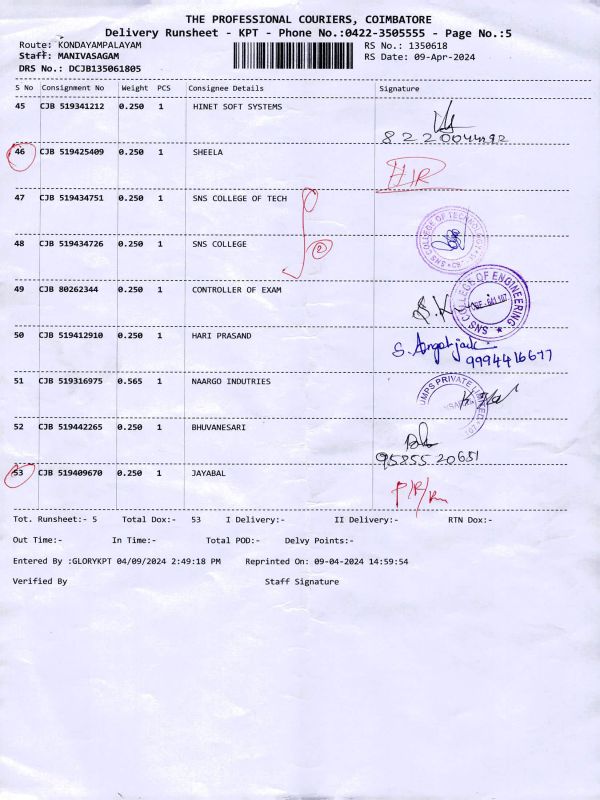 THE PROFESSIONAL COURIERS, COIMBATORE
Delivery Runsheet - KPT - Phone No.:0422-3505555 - Page No.:5
Route: KONDAYAMPALAYAM RS No.: 1350618
Staff: MANIVASAGAM RS Date: 09-Apr-2024
DRS No.: DCJB135061805
S No Consignment No Weight PCS Consignee Details Signature
45 CJB 519341212 0.250 1 HINET SOFT SYSTEMS
46 CJB 519425409 0.250 1 SHEELA
47 CJB 519434751 0.250 1 SNS COLLEGE OF TECH
2
SNS COLLEGE OF TECHNOLOGY
48 CJB 519434726 0.250 1 SNS COLLEGE
49 CJB 80262344 0.250 1 CONTROLLER OF EXAM
SNS COLLEGE OF ENGINEERING
50 CJB 519412910 0.250 1 HARI PRASAND
51 CJB 519316975 0.565 1 NAARGO INDUTRIES
UMPS PRIVATE LIMITED
52 CJB 519442265 0.250 1 BHUVANESARI
95855 20651
53 CJB 519409670 0.250 1 JAYABAL
Tot. Runsheet:- 5 Total Dox:- 53 I Delivery:- II Delivery:- RTN Dox:-
Out Time:- In Time:- Total POD:- Delvy Points:-
Entered By :GLORYKPT 04/09/2024 2:49:18 PM Reprinted On: 09-04-2024 14:59:54
Verified By Staff Signature